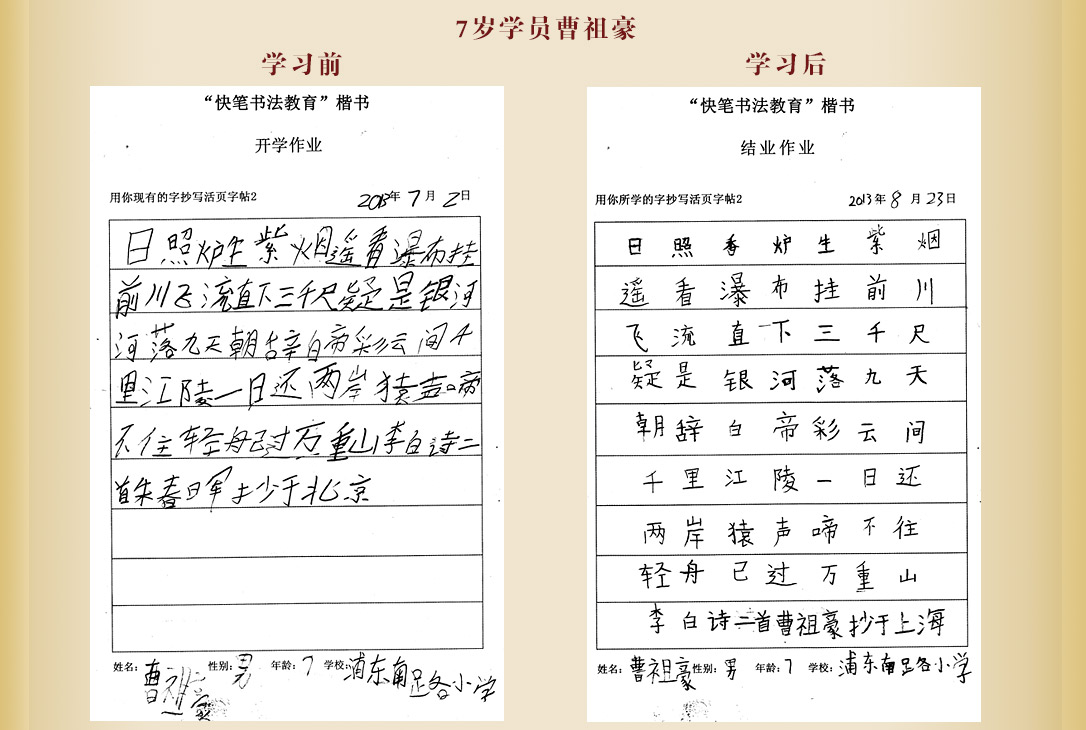 7岁学员曹祖豪
学习前
“快笔书法教育”楷书
开学作业
用你现有的字抄写活页字帖2 2013年7月2日
日照炉生紫烟遥看瀑布挂
前川飞流直下三千尺疑是银河
河落九天朝辞白帝彩云间千
里江陵一日还两岸猿声啼
不住轻舟已过万重山李白诗二
首朱春日军土少于北京
姓名：曹祖豪 性别：男 年龄：7 学校：浦东南足各小学
学习后
“快笔书法教育”楷书
结业作业
用你所学的字抄写活页字帖2 2013年8月23日
日照香炉生紫烟
遥看瀑布挂前川
飞流直下三千尺
疑是银河落九天
朝辞白帝彩云间
千里江陵一日还
两岸猿声啼不往
轻舟已过万重山
李白诗二首曹祖豪抄于上海
姓名：曹祖豪 性别：男 年龄：7 学校：浦东南足各小学